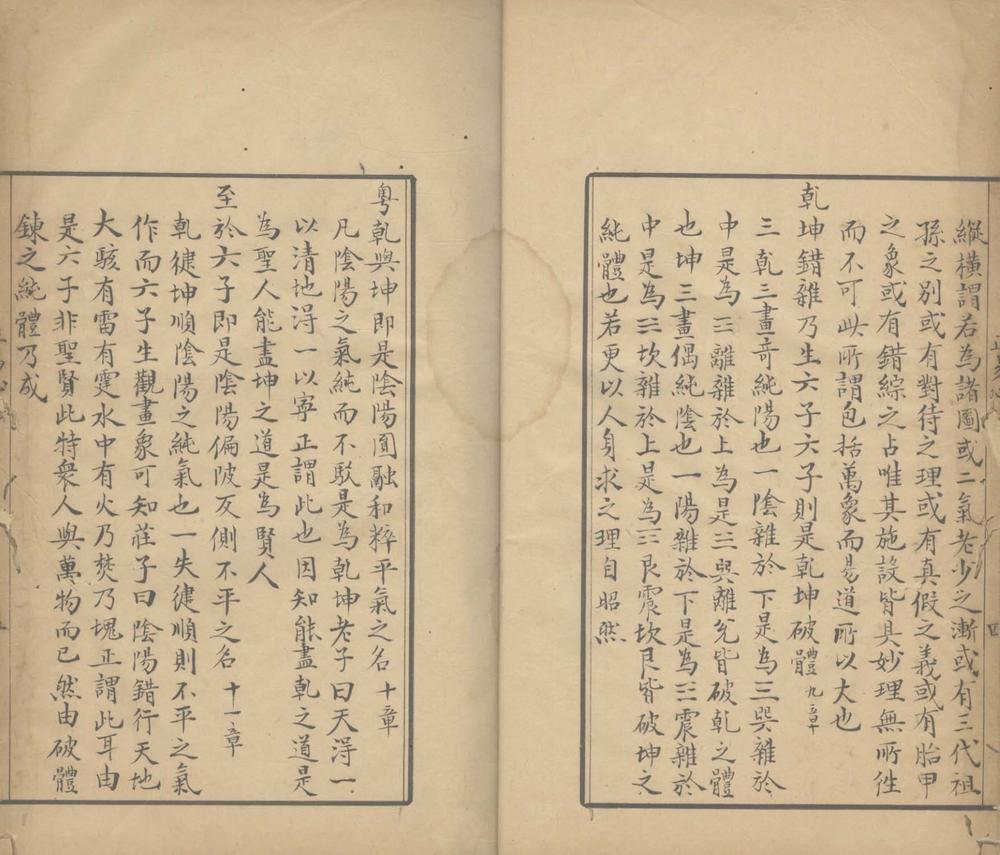 縱橫謂若為諸圖或二氣老少之漸或有三代祖
孫之別或有對待之理或有真假之義或有胎甲
之象或有錯綜之占唯其施設皆具妙理無所徃
而不可此所謂包括萬象而易道所以大也
乾坤錯雜乃生六子六子則是乾坤破體 九章
☰乾三畫竒純陽也一陰雜於下是為☴巽雜於
中是為☲離雜於上為是☱巽離兌皆破乾之體
也坤三畫偶純陰也一陽雜於下是為☳震雜於
中是為☵坎雜於上是為☶艮震坎艮皆破坤之
純體也若更以人身求之理自昭然
粵乾與坤即是陰陽圓融和粹平氣之名 十章
凡陰陽之氣純而不駁是為乾坤老子曰天淂一
以清地淂一以寧正謂此也因知能盡乾之道是
為聖人能盡坤之道是為賢人
至於六子即是陰陽偏陂反側不平之名 十一章
乾徤坤順陰陽之純氣也一失徤順則不平之氣
作而六子生觀畫象可知莊子曰陰陽錯行天地
大駭有雷有霆水中有火乃焚乃塊正謂此耳由
是六子非聖賢此特衆人與萬物而已然由破體
鍊之純體乃成